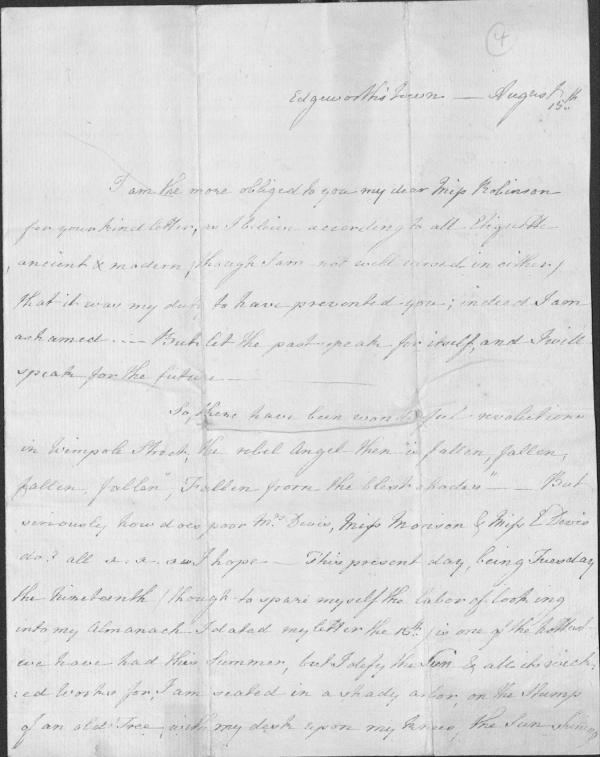 4
Edgeworth's Town — August
15th
I am the more obliged to you my dear Miss Robinson
for your kind letter, as I believe according to all Etiquette
ancient & modern, (though I am not well versed in either)
that it was my duty to have prevented you; indeed I am
ashamed — But let the past speak for itself, and I will
speak for the future —
So, there have been wonderful revolutions
in Wimpole Street, the rebel Angel then is "fallen, fallen,
fallen, fallen", "Fallen from the blest shades" — But
seriously how does poor Mrs Devis, Miss Morison & Miss E Devis
do? all as I hope — This present day, being Tuesday
the Nineteenth (though to spare myself the labor of looking
into my Almanack I dated my letter the 15th) is one of the hottest
we have had this Summer, but I defy the Sun & all its wick-
:ed Works for, I am seated in a shady arbor, on the stump
of an old Tree, with my desk upon my knees, the Sun